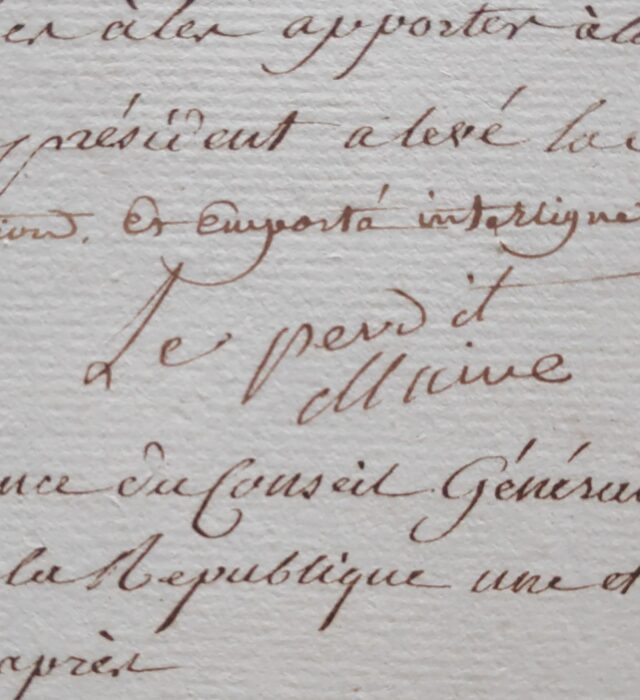 er à les apporter à l
président a levé la
ion. Et emporté interligne
Le perdit
Maire
nce du Conseil Généra
la Republique une et
après